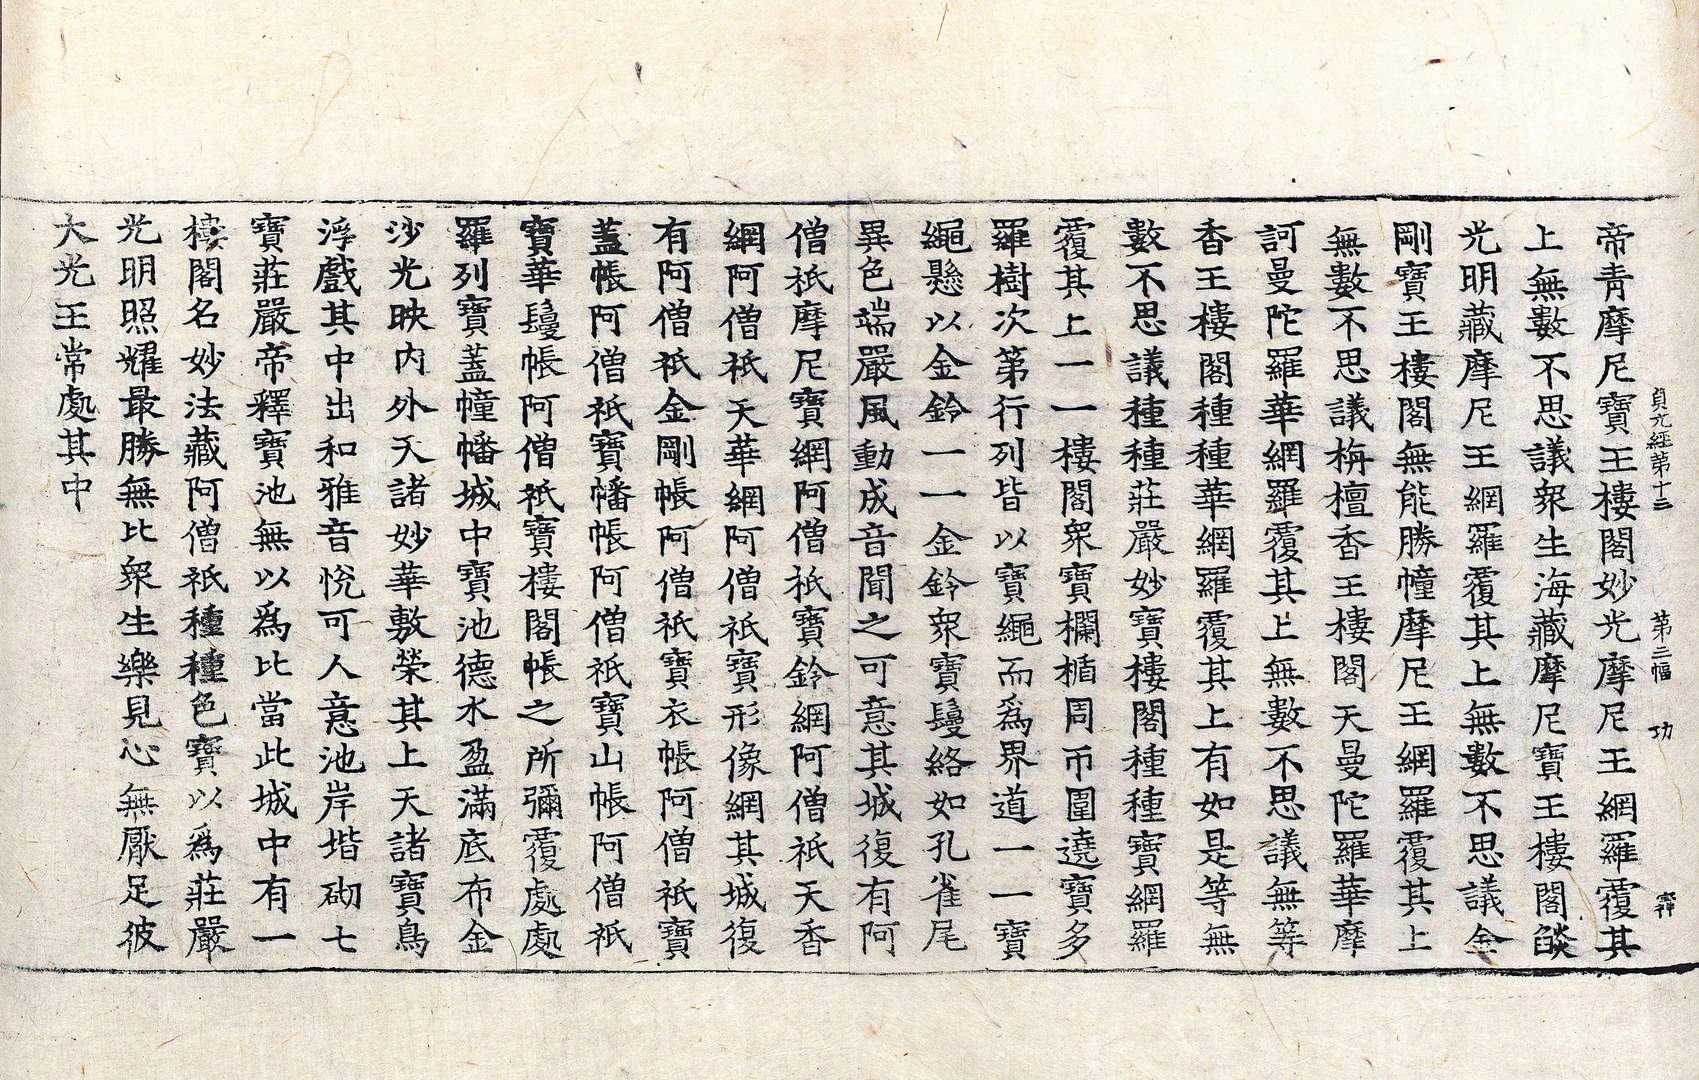 貞元經第十三 第三幅 功
帝青摩尼寶王樓閣妙光摩尼王網羅覆其
上無數不思議衆生海藏摩尼寶王樓閣燄
光明藏摩尼王網羅覆其上無數不思議金
剛寶王樓閣無能勝幢摩尼王網羅覆其上
無數不思議栴檀香王樓閣天曼陀羅華摩
訶曼陀羅華網羅覆其上無數不思議無等
香王樓閣種種華網羅覆其上有如是等無
數不思議種種莊嚴妙寶樓閣種種寶網羅
覆其上一一樓閣衆寶欄楯周帀圍遶寶多
羅樹次第行列皆以寶繩而爲界道一一寶
繩懸以金鈴一一金鈴衆寶鬘絡如孔雀尾
異色端嚴風動成音聞之可意其城復有阿
僧祇摩尼寶網阿僧祇寶鈴網阿僧祇天香
網阿僧祇天華網阿僧祇寶形像網其城復
有阿僧祇金剛帳阿僧祇寶衣帳阿僧祇寶
蓋帳阿僧祇寶幡帳阿僧祇寶山帳阿僧祇
寶華鬘帳阿僧祇寶樓閣帳之所彌覆處處
羅列寶蓋幢幡城中寶池德水盈滿底布金
沙光映內外天諸妙華敷榮其上天諸寶鳥
浮戲其中出和雅音悅可人意池岸堦砌七
寶莊嚴帝釋寶池無以爲比當此城中有一
樓閣名妙法藏阿僧祇種種色寶以爲莊嚴
光明照耀最勝無比衆生樂見心無厭足彼
大光王常處其中